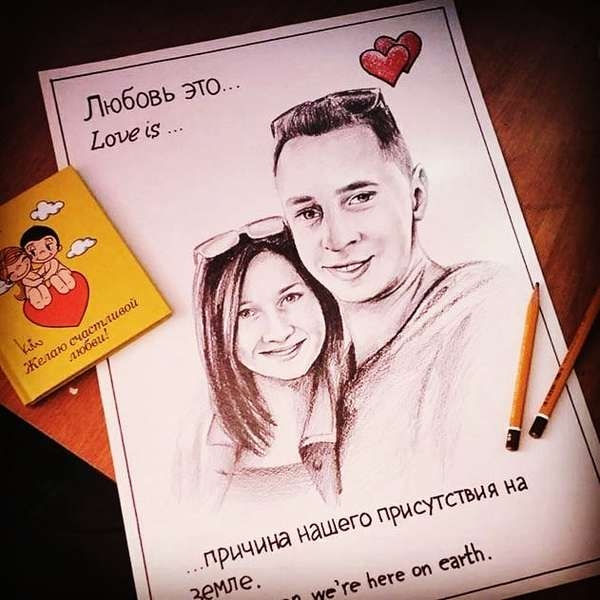 Любовь это...
Love is ...
Желаю счастливой
любви!
...причина нашего присутствия на
земле.
we're here on earth.